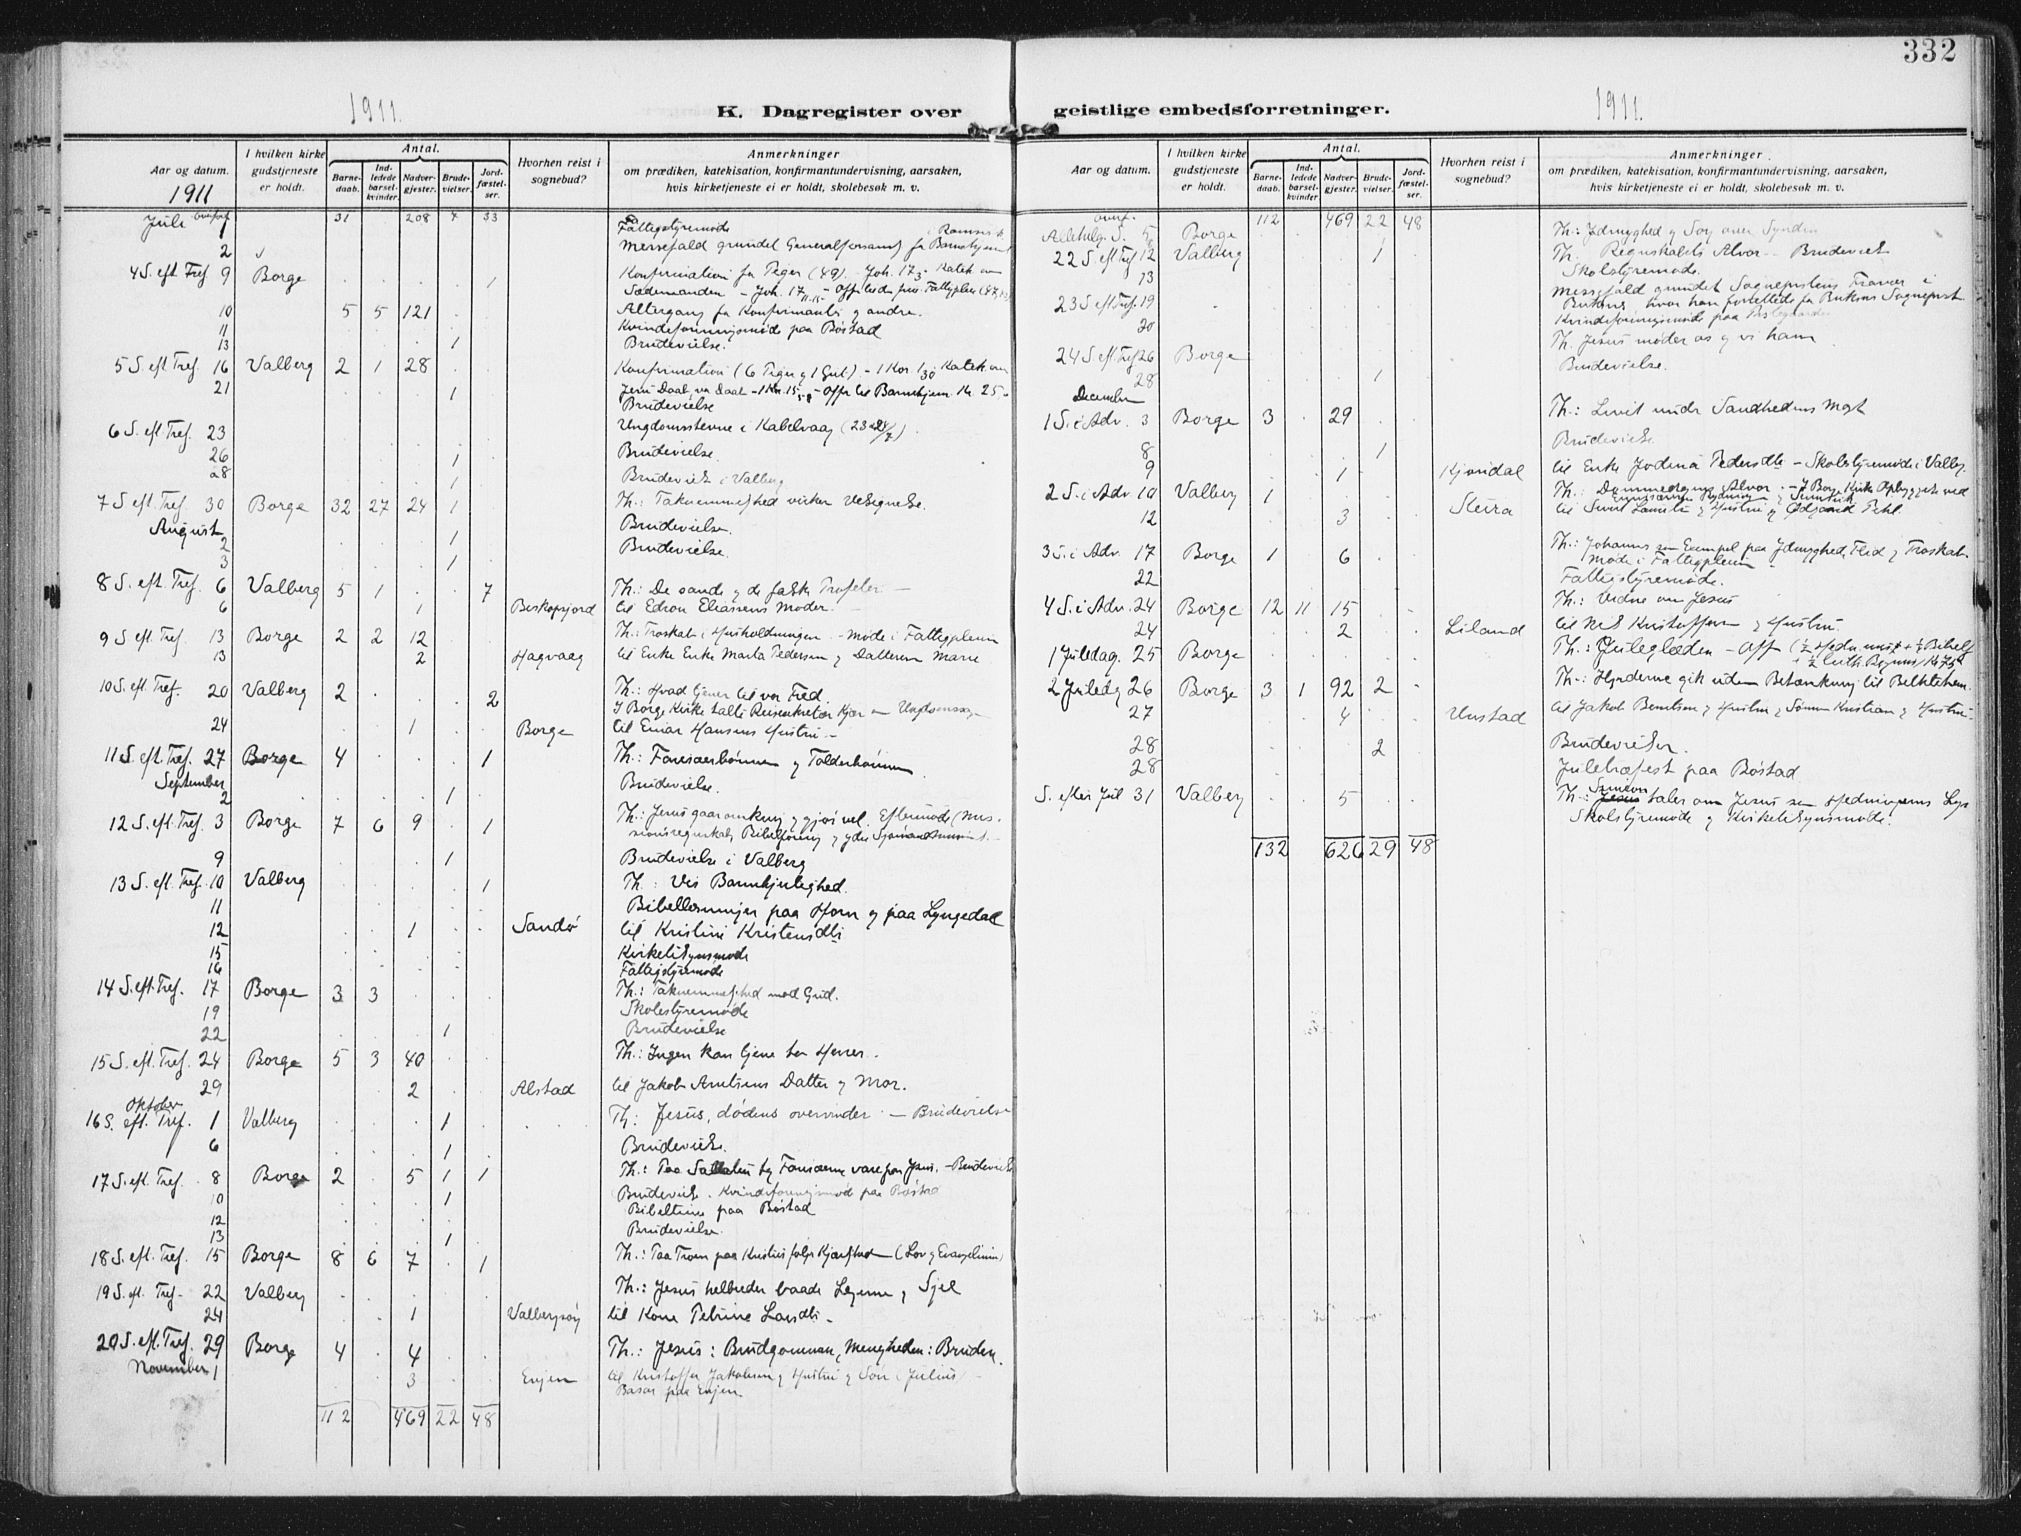 332
1911.
K. Dagregister over
Aar og datum.
I hvilken kirke gudstjeneste er holdt.
Antal.
Barnedaab.
Indledede barselkvinder.
Nadvergjester.
Brudevielser.
Jordfæstelser.
Hvorhen reist i sognebud?
Anmerkninger
om prædiken, katekisation, konfirmantundervisning, aarsaken, hvis kirketjeneste ei er holdt, skolebesøk m. v.
1911
Juli 31 208 7 33
Fattigstyremøde
2 Messefald grundet Generalforsaml. fr Barnehjemmet
4 S. eft Tref. 9 Borge 1 Konfirmation fr Piger (49) - Joh. 17
10 5 5 121 Altergang fr Konfirmanti og andre.
11 Kvindeforeningsmøde paa Bøstad
13 1 Brudevielse.
5 S. eft. Tref. 16 Valberg 2 1 28 Konfirmation (6 Piger og 1 Gut) - 1 Kor 1 30
21 1 Brudevielse
6 S. eft. Tref. 23 Ungdomsstevne i Kabelvaag
26 1 Brudevielse.
28 1 Brudeviels i Valberg
7 S. eft Tref. 30 Borge 32 27 24 1 Th.: Taknemmelighed virker Velsignelse.
August
2 1 Brudevielse.
3 1 Brudevielse.
8 S. eft. Tref. 6 Valberg 5 1 7 Th.: De sande og de falske Profeter. -
6 1 til Edron Eliassens Moder. -
9 S eft. Tref. 13 Borge 2 2 12 Th.: Troskab i Husholdningen - Møde i Fattigplein
13 2 Hagvaag til Enke Enke Marta Pedersen og Datteren Marie
10 S. eft. Tref. 20 Valberg 2 2 Th.: Hvad tjener til vor Fred
I Borge Kirke talte Reisesekretær
24 1 Borge til Einar Hansens Hustru -
11 S. eft. Tref. 27 Borge 4 1 Th.: Farisæerbønnen og Tolderbønnen.
September
2 1 Brudevielse.
12 S. eft. Tref. 3 Borge 7 6 9 1 Th.: Jesus gaar omkring og gjør vel. Eftermøde
9 1 Brudevielse i Valberg
13 S. eft. Tref. 10 Valberg 1 Th.: Vis Barmhjertighed.
11 Bibellæsninger paa Horn og paa Lyngedal
12 1 Sandø til Kristine Kristensdtr
15 Kirketilsynsmøde
16 Fattigstyremøde
14 S. eft. Tref. 17 Borge 3 3 Th.: Taknemmelighed mod Gud.
19 Skolestyremøde
22 1 Brudevielse
15 S. eft. Tref. 24 Borge 5 3 40 Th.: Ingen kan tjene to Herrer.
29 2 Alstad til Jakob Arntsens Datter og Mor.
Oktober
16 S. eft. Tref. 1 Valberg 1 Th: Jesus, dødens overvinder - Brudevielse
6 1 Brudevielse.
17 S. eft Tref. 8 Borge 2 5 1 1
10 1 Brudevielse. Kvindeforeningsmøde paa Bøstad
12 Bibeltime paa Bøstad
13 1 Brudevielse.
18 S. eft. Tref. 15 Borge 8 6 7 1 Th.: Paa Troen paa Kristus følger Kjærlighed - (Lov og Evangelium)
19 S. eft. Tref. 22 Valberg Th.: Jesus helbreder baade Legeme og Sjel
24 1 Valbergsøy til Kone Petrine Larsdtr.
20 S. eft. Tref. 29 Borge 4 4 Th.: Jesus: Brudgommen, Menigheden: Bruden.
November 1 3 Evjen til Kristoffer Jakobsen og Hustru og Søn Julius
Basar paa Evjen
112 469 22 48
1911.
geistlige embedsforretninger.
Aar og datum.
I hvilken kirke gudstjeneste er holdt.
Antal.
Barnedaab.
Indledede barselkvinder
Nadvergjester.
Brudevielser.
Jordfæstelser.
Hvorhen reist i sognebud?
Anmerkninger
om prædiken, katekisation, konfirmantundervisning, aarsaken, hvis kirketjeneste ei er holdt, skolebesøk m. v.
overf. 112 469 22 48
Allehelg. S. 5 Borge Th.: Ydmyghed og Sorg over Synden
22 S. eft Tref 12 Valberg 1 Th. Regnskabets Alvor - Brudevielse
13 Skolestyremøde.
23 S eft Tref. 19 Messefald grundet Sogneprestens Fravær i Buksnes, hvor han forrettede for Buksnes Sogneprest.
20 Kvindeforeningsmøde paa Prestegaarden
24 S eft Tref 26 Borge Th. Jesus møder os og vi ham
28 1 Brudevielse.
December
1 S. i Adv. 3 Borge 3 29 Th.: Livet under Sandhedens Magt
8 1 Brudevielse
9 1 til Enke Jodina Pedersdtr - Skolestyremøde i Valberg.
2 S. i Adv. 10 Valberg 1 Th.: Dommedagens Alvor. - I Borge Kirke Opbyggelse ved
12 3 Steira
3 S. i Adv. 17 Borge 1 6 Th.: Johannes som Exempel paa Ydmyghed, Flid og Troskab.
Møde i Fattigplein
22 Fattigstyremøde.
4 S. i Adv. 24 Borge 12 11 15 Th.: Vidne om Jesus
24 2 Liland til Nils Kristoffersen og Hustru.
1 Juledag. 25 Borge Th.: Juleglæden - Offer
2 Juledag 26 Borge 3 1 92 2 Th.: Hyrderne gik uden Betænkning til Bethlehem.
27 4 Unstad til Jakob Berntsen og Hustru og Sønnen Kristian og Hustru -
28 2 Brudevielser.
28 Juletræfest paa Bøstad
S. efter Jul 31 Valberg 5 Th.: Simeon taler om Jesus som Hedningernes Lys
Skolestyremøde og Kirketilsynsmøde.
132 626 29 48